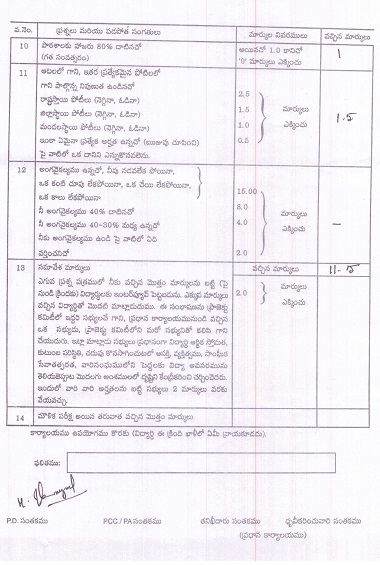 వ.నెం. ప్రశ్నలు మరియు పడపోత సంగతులు మార్కుల వివరములు వచ్చిన మార్కులు
10 పాఠశాలకు హాజరు 80% దాటినచో అయినచో 1.0 కానిచో 1
(గత సంవత్సరం) '0' మార్కులు ఎక్కించు
11 ఆటలలో గాని, ఇతర ప్రత్యేకమైన పోటీలలో
గాని పాల్గొన్న నిపుణత ఉండినచో
రాష్ట్రస్థాయి పోటీలు (నెగ్గినా, ఓడినా) 2.5
జిల్లాస్థాయి పోటీలు (నెగ్గినా, ఓడినా) 1.5 మార్కులు 1.5
మండలస్థాయి పోటీలు (నెగ్గినా, ఓడినా) 1.0 ఎక్కించు
ఇంకా ఏమైనా ప్రత్యేక అర్హత ఉన్నచో (ఋజువు చూపించి) 0.5
పై వాటిలో ఒక దానిని ఎన్నుకొనవలెను.
12 అంగవైకల్యము ఉన్నచో, నీవు నడవలేక పోయినా,
ఒక కంటి చూపు లేకపోయినా, ఒక చేయి లేకపోయినా, 15.00
ఒక కాలు లేకపోయినా 8.0
నీ అంగవైకల్యము 40% దాటినచో 4.0 మార్కులు
నీ అంగవైకల్యము 40-30% మధ్య ఉన్నచో ఎక్కించు –
నీకు అంగవైకల్యము ఉండి పై వాటిలో ఏది
వర్తించనిచో 2.0
13 సమావేశ మార్కులు వచ్చిన మార్కులు 11.5
ఎగువ ప్రశ్న పత్రములో నీకు వచ్చిన మొత్తం మార్కులను బట్టి (పై
నుండి క్రిందకు) విద్యార్థులకు ఇంటర్వ్యూవ్ పెట్టబడును. ఎక్కువ మార్కులు 2.0 మార్కులు
వచ్చిన విద్యార్థితో మొదటి మాట్లాడుదుము. ఈ సంభాషణను ప్రాజెక్టు ఎక్కించు
కమిటీలో ఇద్దరి సభ్యులచే గాని, ప్రధాన కార్యాలయమునుండి వచ్చిన
ఒక సభ్యుడు, ప్రాజెక్టు కమిటీలోని మరో సభ్యునితో కలిసి గాని
చేయుదురు. ఇట్లా మాట్లాడు సభ్యులు ప్రధానంగా విద్యార్థి ఆర్థిక స్తోమత,
కుటుంబ పరిస్థితి, చదువు కొనసాగించుటలో ఆసక్తి, వ్యక్తిత్వము, సాంఘిక
సేవాతత్పరత, వారిసంఘములోని పెద్దలకు విద్యా అవసరమును
తెలియజెప్పుట మొదలగు అంశములలో దృష్టిని కేంద్రీకరించి చర్చించెదరు.
ఇందులో వారి వారి అర్హతలను బట్టి సభ్యులు 2 మార్కులు వరకు
వేయవచ్చు.
14 మౌళిక పరీక్ష అయిన తరువాత వచ్చిన మొత్తం మార్కులు
కార్యాలయము ఉపయోగము కొరకు (విద్యార్థి ఈ క్రింది ఖాళీలో ఏమీ వ్రాయకూడదు).
ఫలితము:
P.D. సంతకము PCC / PA సంతకము తనిఖీదారు సంతకము ధృవీకరించువారి సంతకము
(ప్రధాన కార్యాలయము)